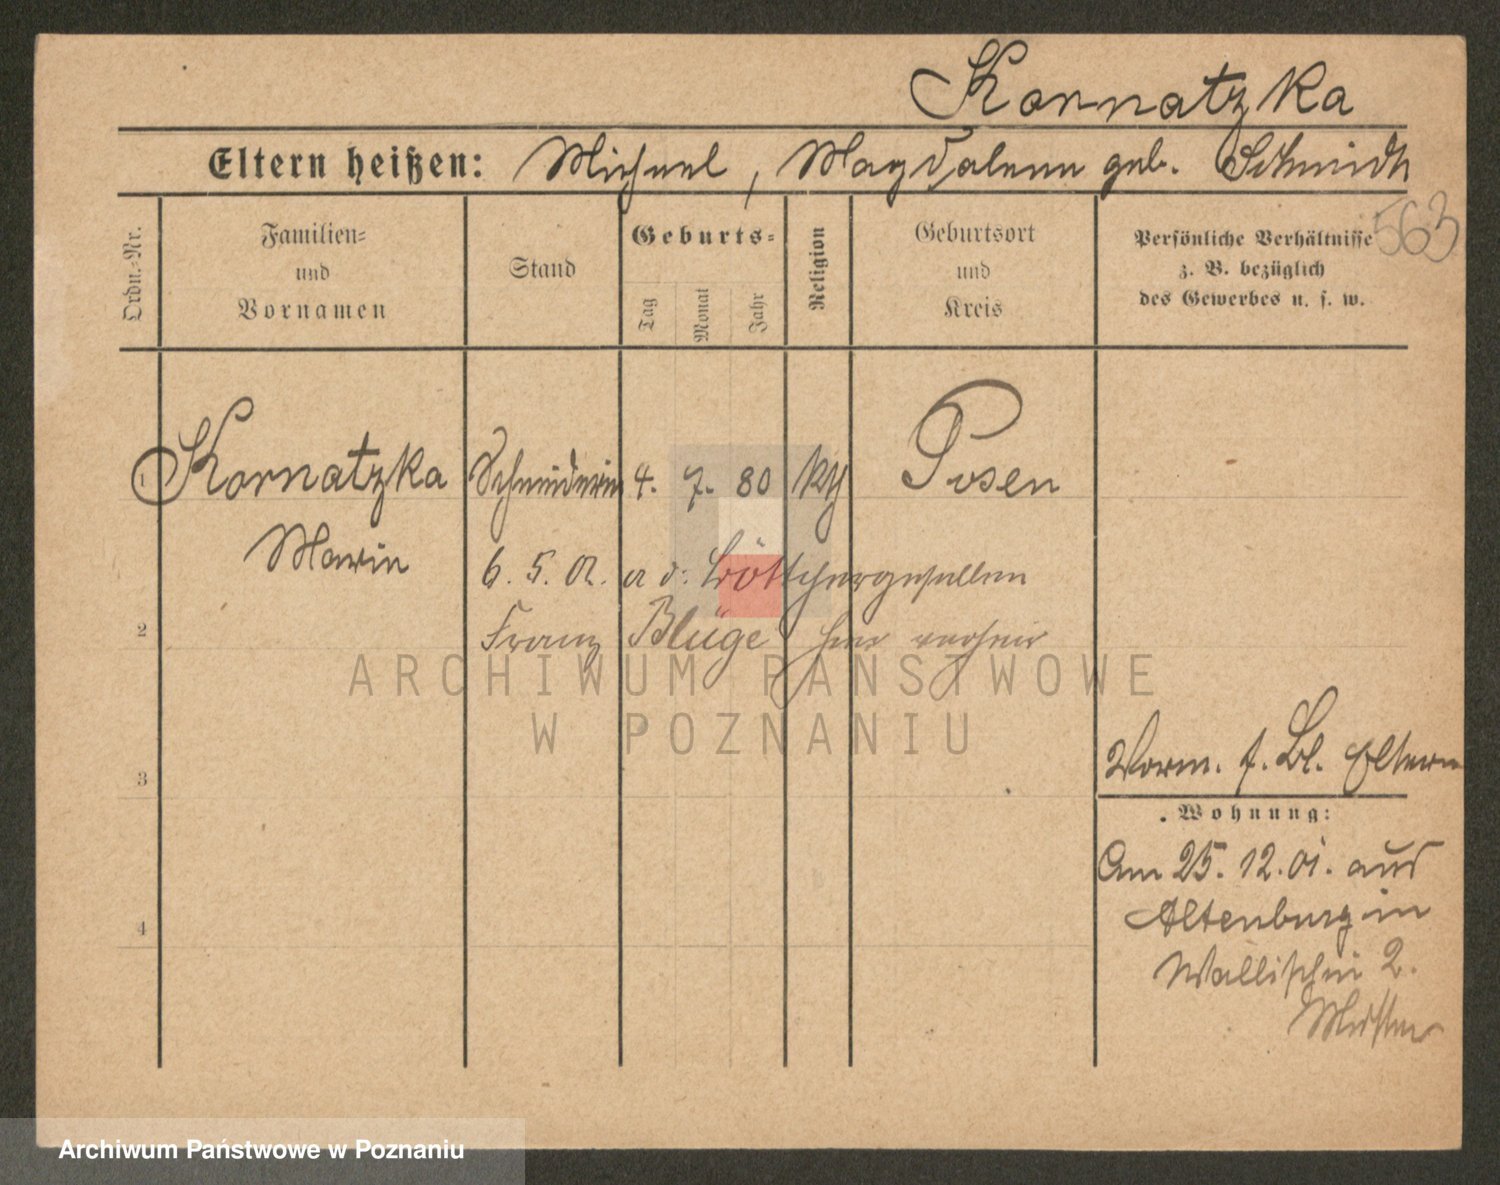 Kornatzka
Eltern heißen: Michael, Magdalena geb. Schmidt
563
Ordn.-Nr.
Familien- und Vornamen
Stand
Geburts-
Tag
Monat
Jahr
Religion
Geburtsort und Kreis
Persönliche Verhältnisse z. B. bezüglich des Gewerbes u. s. w.
1 Kornatzka Schneiderin 4. 7. 80 kth Posen
Maria
6. 5. 02. a d. Böttchergesellen
2 Franz Blüge hier
ARCHIWUM PAŃSTWOWE
W POZNANIU
3
Vorm. f. Bl. Eltern
Wohnung:
Am 25. 12. 01. aus
Altenburg in
4
Wallischei 2.
Archiwum Państwowe w Poznaniu